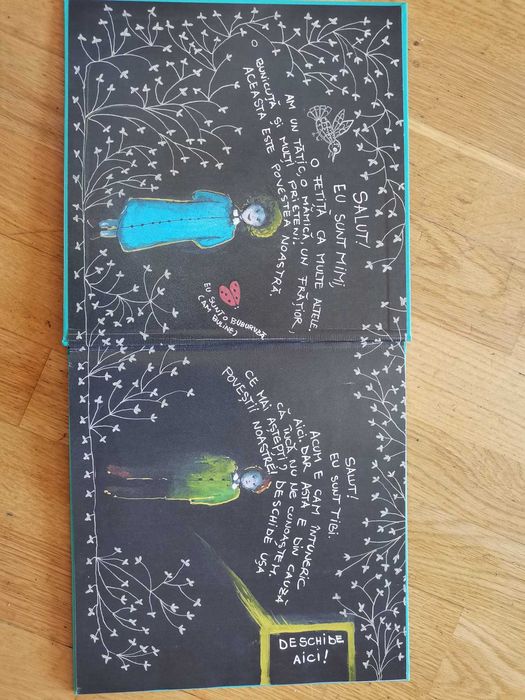 SALUT!
EU SUNT MIMI,
O FETIȚĂ CA MULTE ALTELE.
AM UN TĂTIC, O MĂMICĂ, UN FRĂȚIOR,
O BUNICUȚĂ ȘI MULȚI PRIETENI.
ACEASTA ESTE POVESTEA NOASTRĂ.
EU SUNT O BUBURUZĂ
(AM BULINE)
SALUT!
EU SUNT TIBI.
ACUM E CAM ÎNTUNERIC
AICI. DAR ASTA E DIN CAUZĂ
CĂ ÎNCĂ NU NE CUNOAȘTEM.
CE MAI AȘTEPȚI? DESCHIDE UȘA
POVEȘTII NOASTRE!
DESCHIDE
AICI!